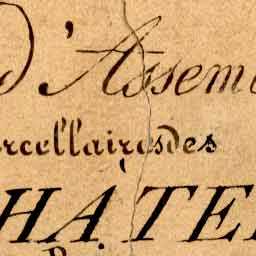 d'Assem
rcellaires des
HÂTE